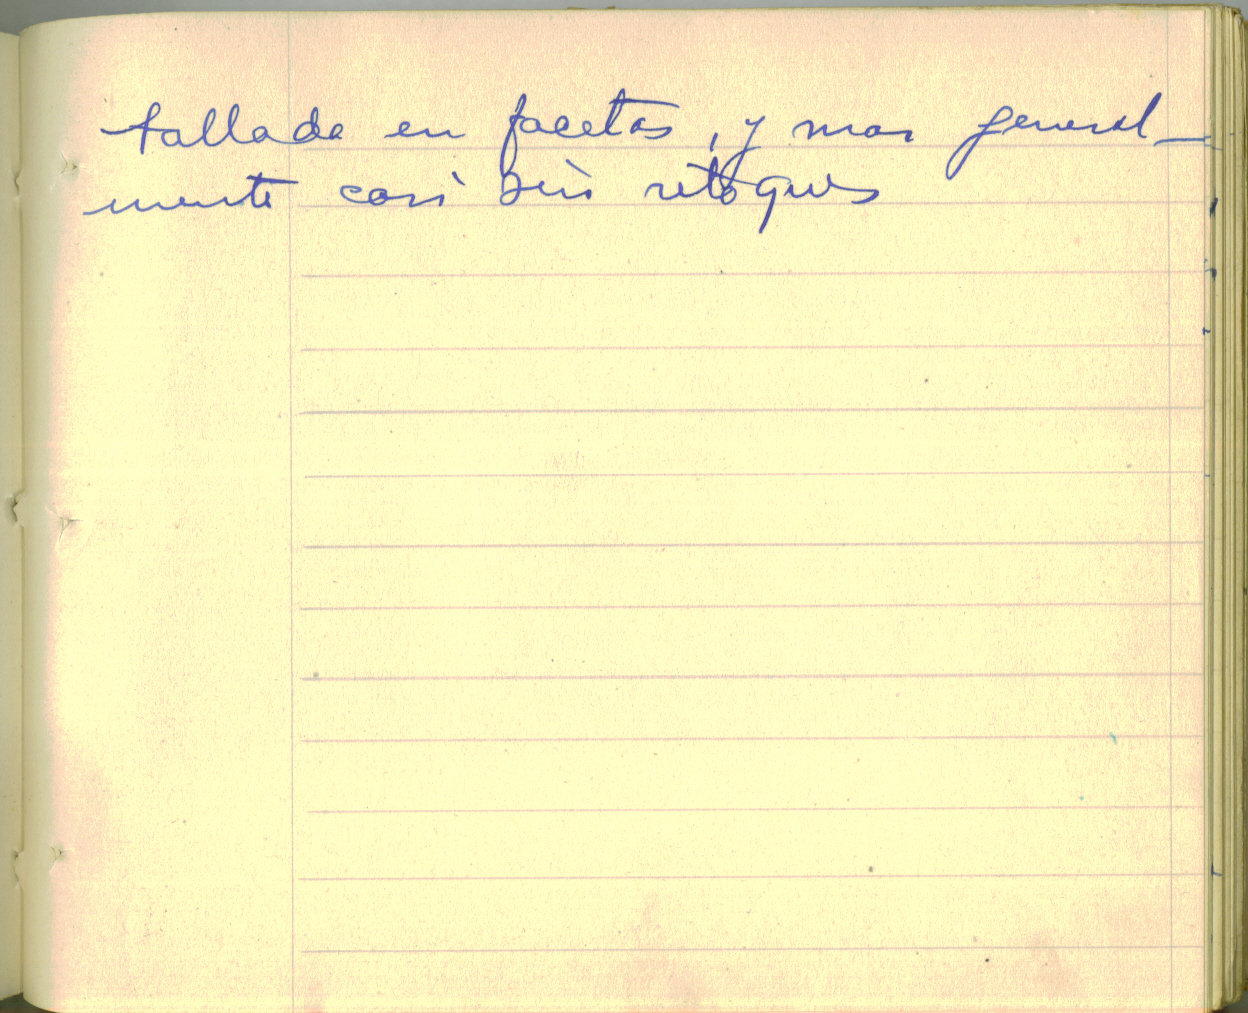 tallada en facetas, y mas general-
mente casi sin retoques